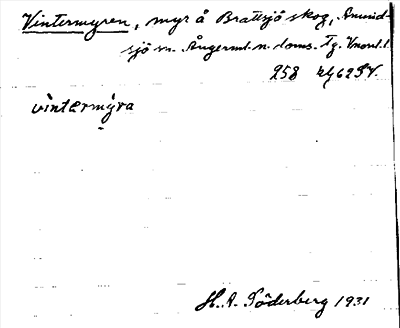 Vintermyren, myr å Brattsjö skog, Anund-
sjö sn. Ångerml. n. doms. Tg. Vnorrl. l.
258
vìntermýra
H. A. Söderberg 1931